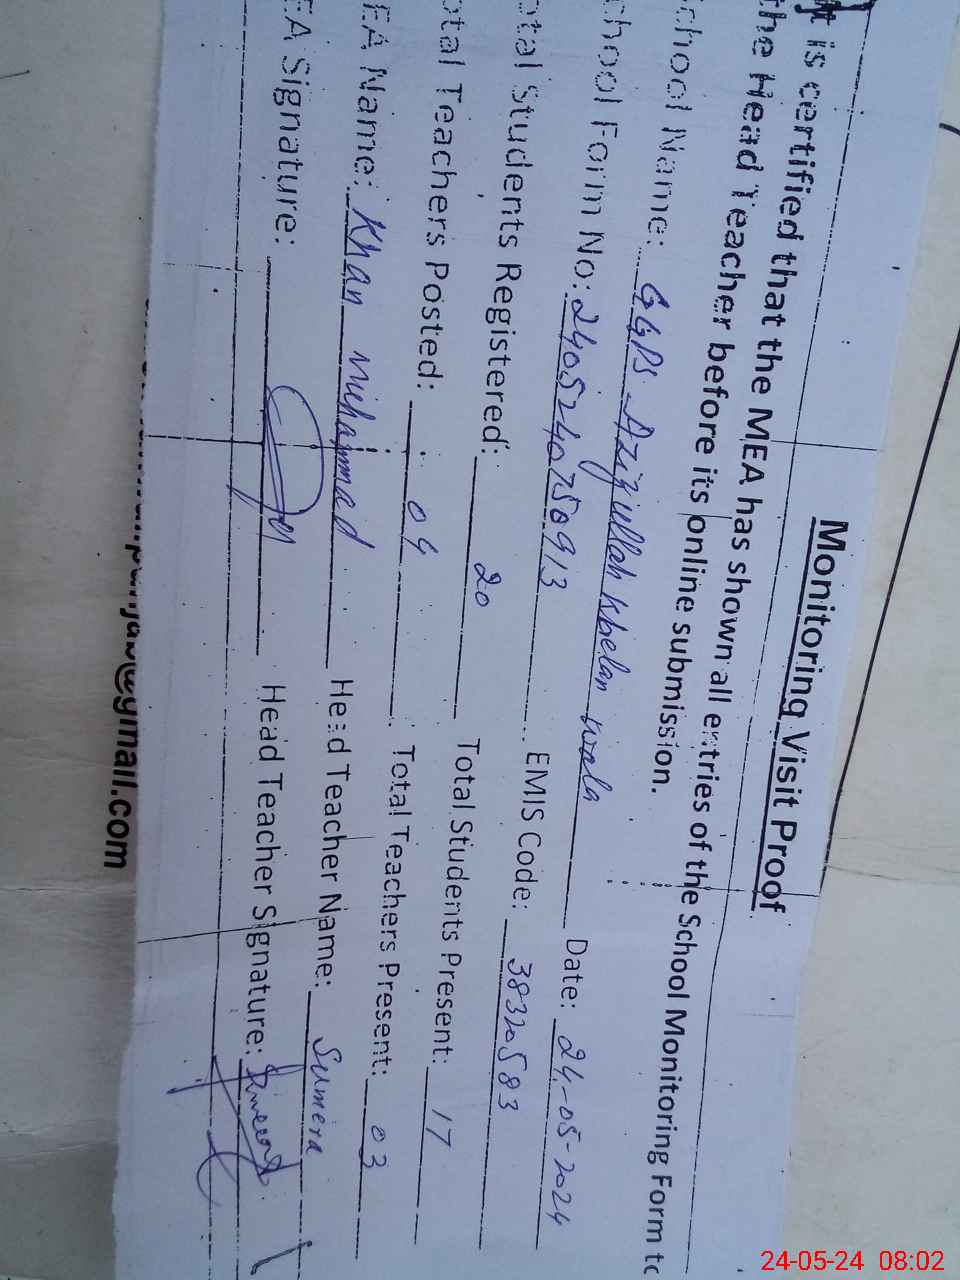 Monitoring Visit Proof
It is certified that the MEA has shown all entries of the School Monitoring Form to
the Head Teacher before its online submission.
chool Name: GGPS Azizullah Khelan wala Date: 24-05-2024
chool Form No: 2405240750913 EMIS Code: 38320583
otal Students Registered: 20 Total Students Present: 17
otal Teachers Posted: 04 Total Teachers Present: 03
EA Name: Khan Muhammad Head Teacher Name: Sumera
EA Signature: Head Teacher Signature:
punjab@gmail.com
24-05-24 08:02